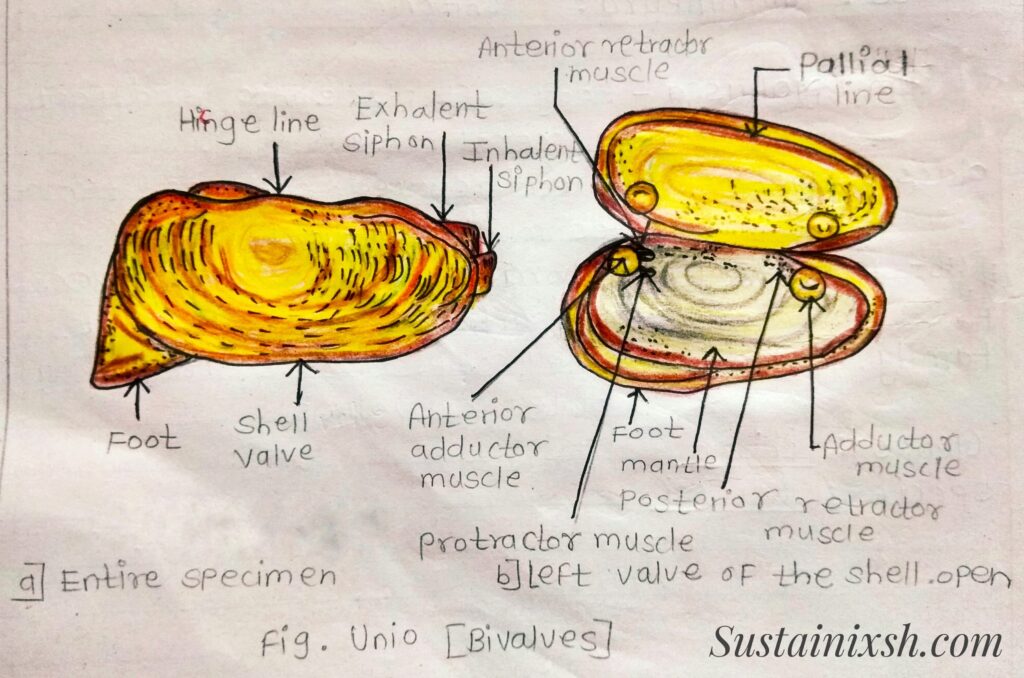 Hinge line
Exhalent
siphon
Inhalent
siphon
Foot
Shell
valve
a] Entire specimen
Anterior retractor
muscle
Pallial
line
Anterior
adductor
muscle.
Foot
mantle
Adductor
muscle
Posterior retractor
muscle
Protractor muscle
b] Left valve of the shell.open
Fig. Unio [Bivalves]
Sustainixsh.com